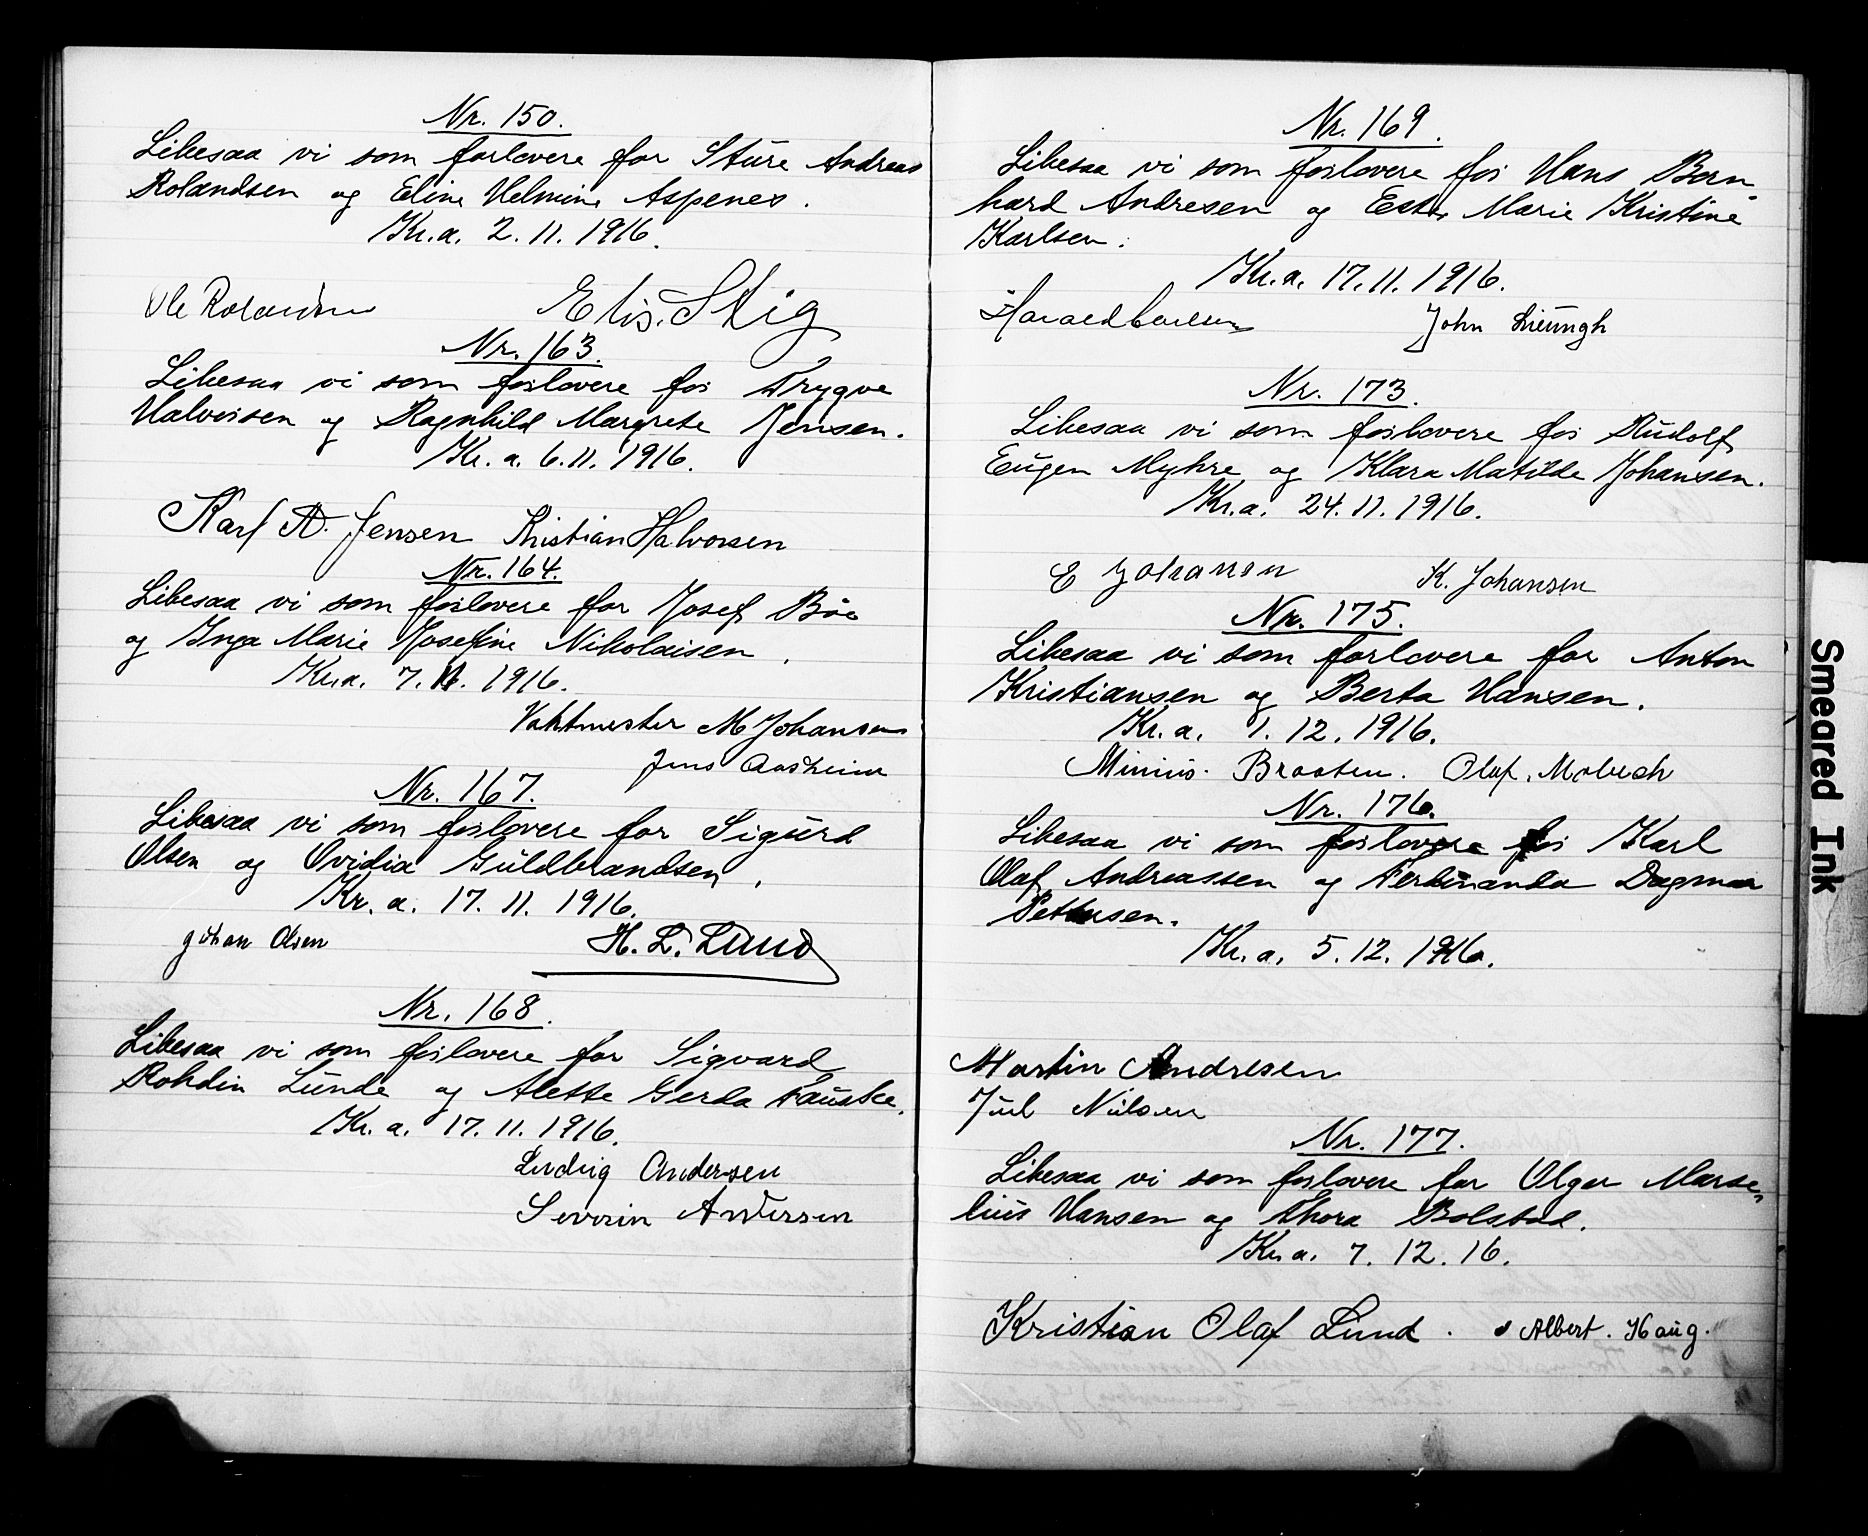 Nr. 150.
Likesaa vi som forlovere for Sture Andreas
Rolandsen og Eline Helmine Aspenes.
Kr.a. 2. 11. 1916.
Ole Rolandsen Elis. Stig
Nr. 163.
Likesaa vi som forlovere for Trygve
Halvorsen og Ragnhild Margrete Jensen.
Kr. a. 6. 11. 1916.
Karl A. Jensen Kristian Halvorsen
Nr. 164.
Likesaa vi som forlovere for Josef Böe
og Inga Marie Josefine Nikolaisen.
Kr.a. 7. 11. 1916.
Vaktmester M Johansen
Jens Aasheim
Nr. 167.
Likesaa vi som forlovere for Sigurd
Olsen og Ovidia Guldbrandsen.
Kr. a. 17. 11. 1916.
Johan Olsen H. L. Lund
Nr. 168.
Likesaa vi som forlovere for Sigvard
Rohdin Lunde og Alette Gerda Fauske.
Kr. a. 17. 11. 1916.
Ludvig Andersen
Severin Andersen
Nr. 169.
Likesaa vi som forlovere for Hans Bern
hard Andresen og Ester Marie Kristine
Karlsen.
Kr.a. 17. 11. 1916.
Harald Carlsen John Lieungh
Nr. 173.
Likesaa vi som forlovere for Rudolf
Eugen Myhre og Klara Matilde Johansen.
Kr.a. 24. 11. 1916.
E Johansen K. Johansen
Nr. 175.
Likesaa vi som forlovere for Anton
Kristiansen og Berta Hansen.
Kr. a. 1. 12. 1916.
Minius. Braaten. Olaf. Mobech
Nr. 176.
Likesaa vi som forlovere for Karl
Olaf Andreassen og Ferdinanda Dagmar
Pettersen.
Kr. a. 5. 12. 1916.
Martin Andresen
Juel Nielsen
Nr. 177.
Likesaa vi som forlovere for Olgar Marse
lius Hansen og Thora Bolstad.
Kr. a. 7. 12. 16.
Kristian Olaf Lund. Albert. Haug.
Smeared Ink